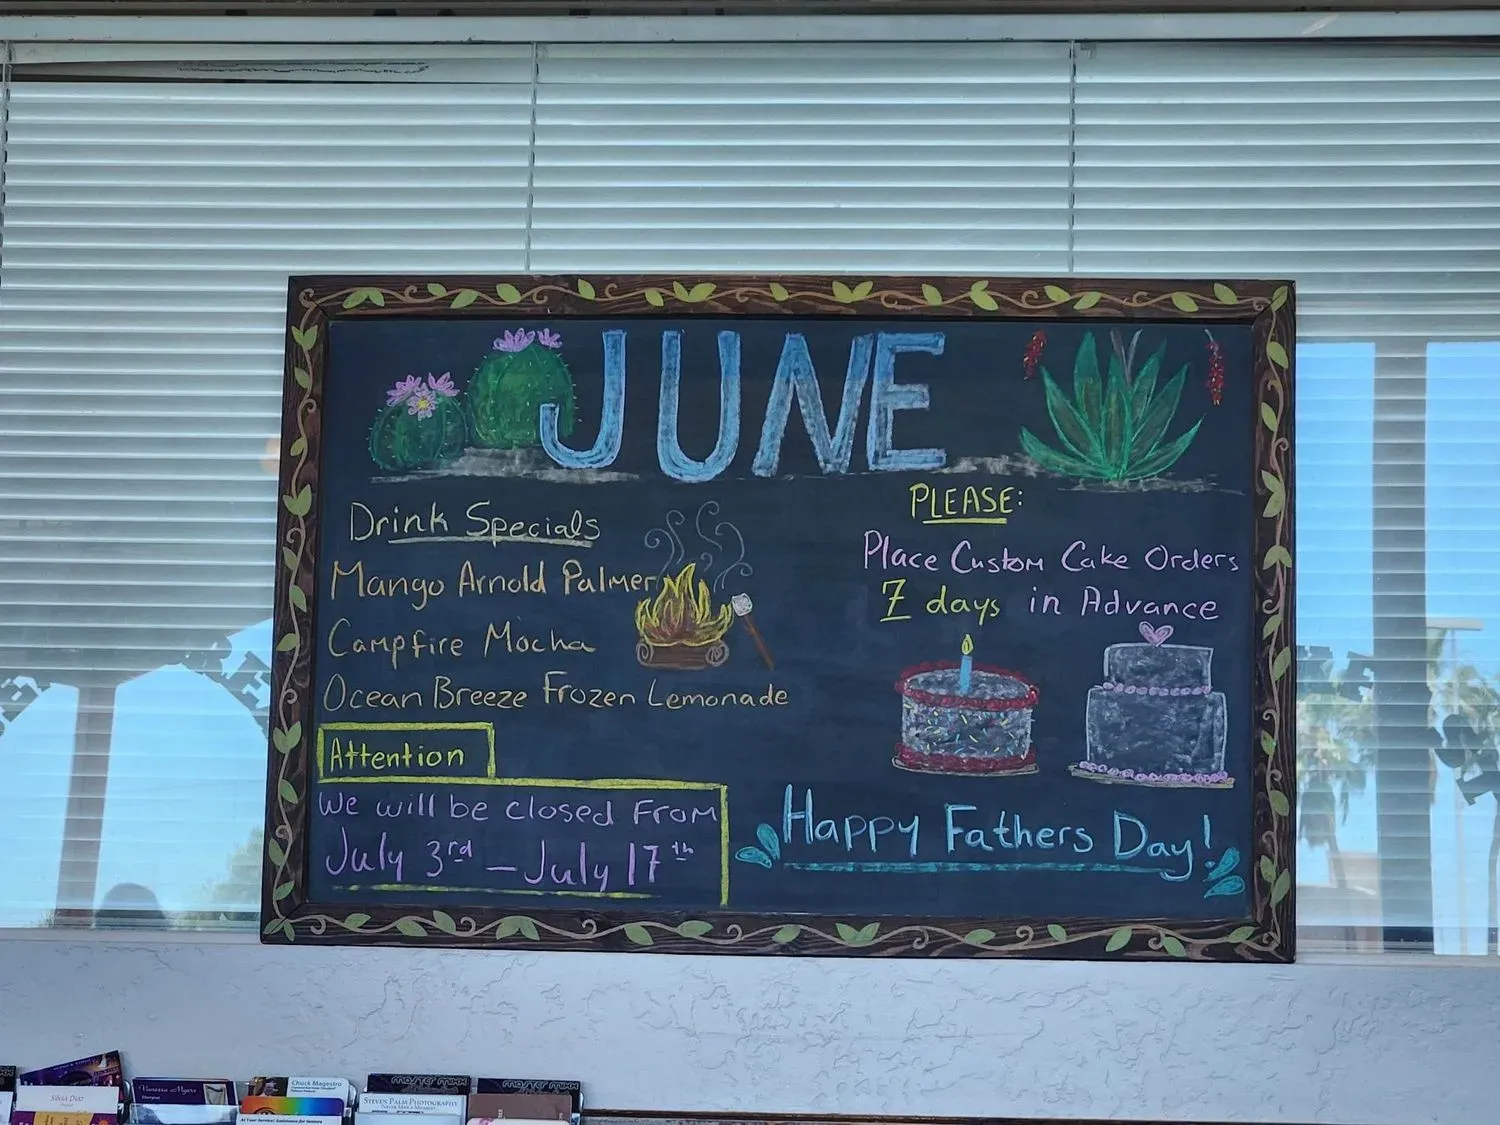 JUNE
Drink Specials
Mango Arnold Palmer
Campfire Mocha
Ocean Breeze Frozen Lemonade
Attention
We will be closed From
July 3rd – July 17th
PLEASE:
Place Custom Cake Orders
7 days in Advance
Happy Fathers Day!
Silvia Diaz
Vanessa Myers
Chuck Magestro
At Your Service/Assistance for Seniors
master mixx
Steven Palm Photography
master mixx